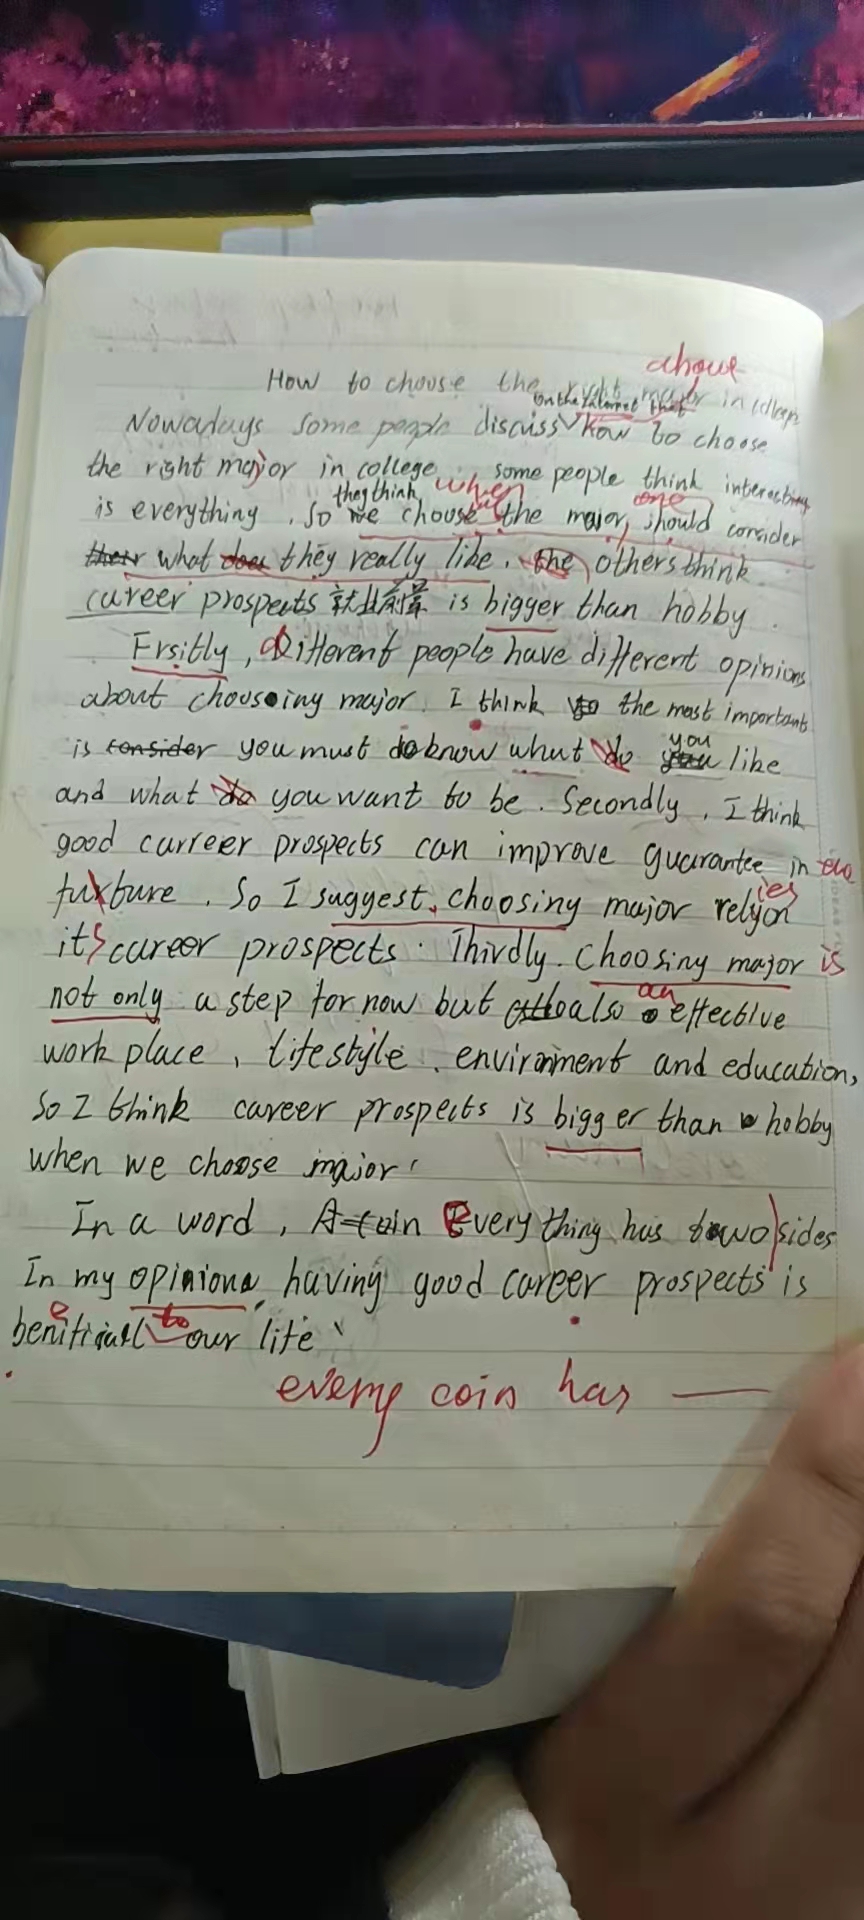 about
How to choose the right major in college
on the internet that
Nowadays some people discuss how to choose
the right major in college . some people think interesting
they think when one
is everything . So we choose the major, should consider
their what does they really like . the others think
career prospects 就业前景 is bigger than hobby .
Frsitly , different people have different opinions
about choosing major . I think to the most important
you
is consider you must do know what do you like
and what do you want to be . Secondly , I think
good curreer prospects can improve guarantee in the
ies
fuxture . So I suggest, choosing major relyon
its career prospects . Thirdly . Choosing major is
an
not only a step for now but also effective
work place , lifestyle . environment and education,
So I think career prospects is bigger than hobby
when we choose major .
In a word , A coin Everything has two sides
In my opinione, having good career prospects is
e to
benifical our life .
every coin has —